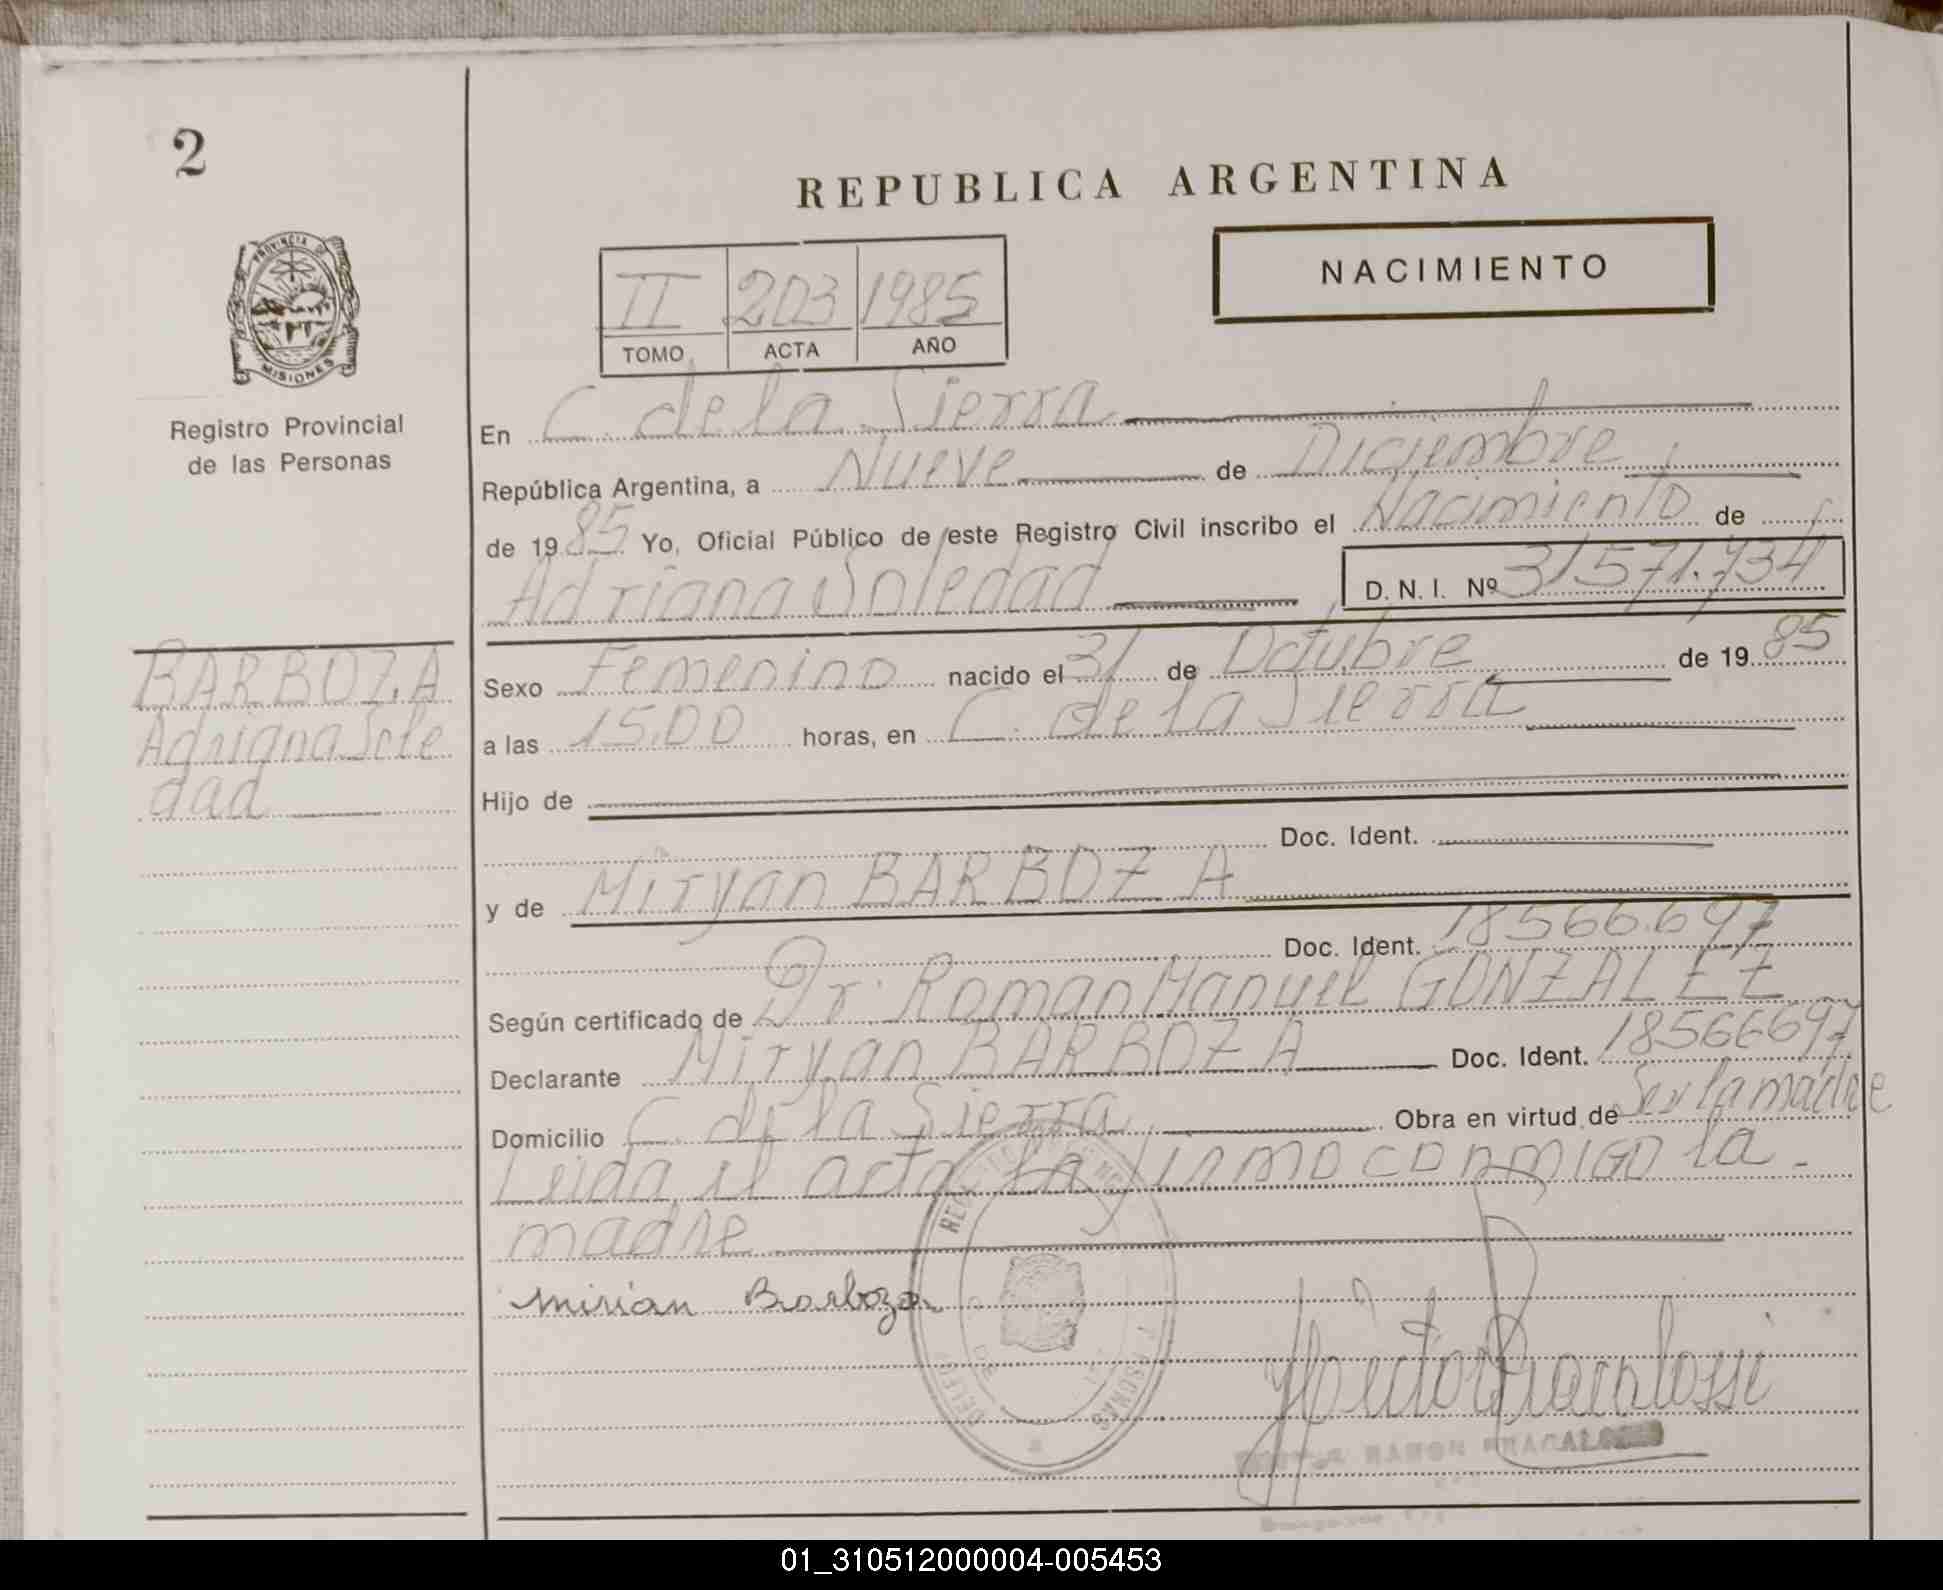 2
REPUBLICA ARGENTINA
NACIMIENTO
II 203 1985
TOMO ACTA AÑO
PROVINCIA DE
MISIONES
Registro Provincial
de las Personas
En C. de la Sierra
República Argentina, a Nueve de Diciembre
de 1985. Yo, Oficial Público de este Registro Civil inscribo el Nacimiento de
Adriana Soledad D. N. I. Nº 31571.734
BARBOZA
Adriana Sole
dad
Sexo Femenino nacido el 31 de Octubre de 1985
a las 15.00 horas, en C. de la Sierra
Hijo de
Doc. Ident.
y de Miryan BARBOZA
Doc. Ident. 18566.697
Según certificado de Dr. Roman Manuel GONZALEZ
Declarante Miryan BARBOZA Doc. Ident. 18566697
Domicilio C. de la Sierra Obra en virtud de Ser la madre
Leida el acta la firmo conmigo la
madre
Mirian Barboza
RAMON
01_310512000004-005453